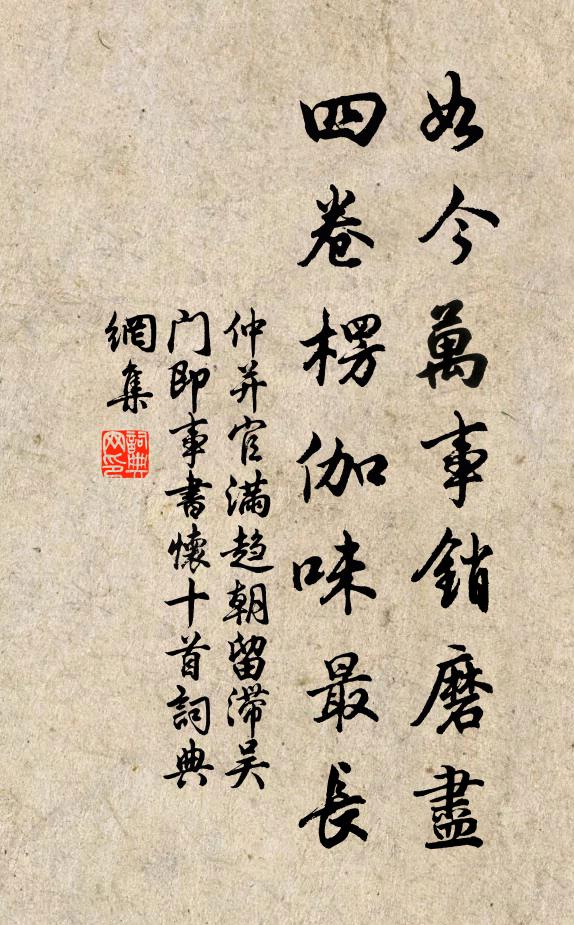 如今萬事銷磨盡
四卷楞伽味最長
仲并官滿趋朝留滞吴
门即事書懷十首詞典
網集
詞典网印